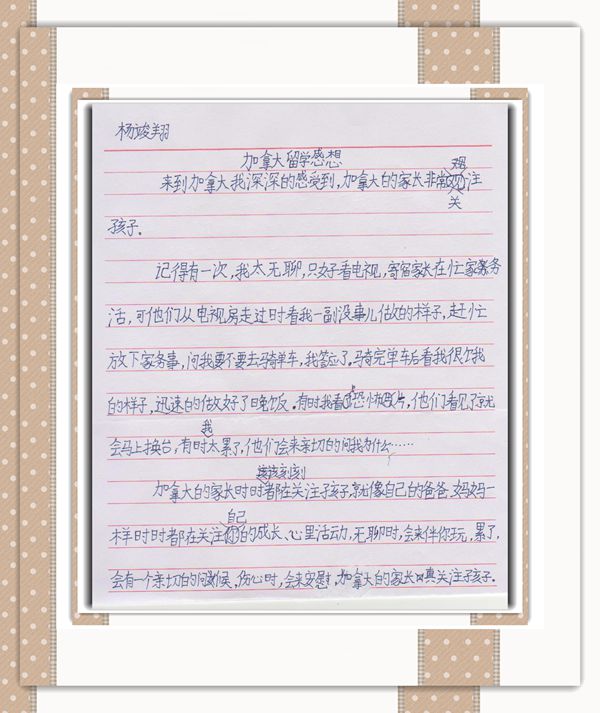 杨竣翔
加拿大留学感想
来到加拿大我深深的感受到,加拿大的家长非常关注
孩子.
记得有一次,我太无聊,只好看电视,寄宿家长在忙家务
活,可他们从电视房走过时看我一副没事儿做的样子,赶忙
放下家务事,问我要不要去骑单车,我答应了.马奇完单车后看我很饿
的样子,迅速的做好了晚饭.有时我看恐怖片,他们看见了就
会马上换台,有时我太累了,他们会来亲切的问我为什么……
加拿大的家长时时刻刻都在关注孩子,就像自己的爸爸妈妈一
样时时都在关注自己的成长、心里活动,无聊时,会来伴你玩,累了,
会有一个亲切的问候,伤心时,会来安慰.加拿大的家长真关注孩子.